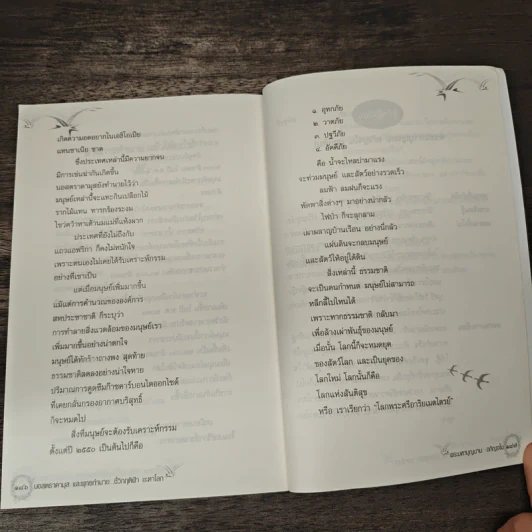 เกิดความอดอยากในเอธิโอเปีย
แทนซาเนีย ชาด
ซึ่งประเทศเหล่านี้มีความยากจน
มีการเข่นฆ่ากันเกิดขึ้น
นอสตราดามุสยังทำนายไว้ว่า
มนุษย์เหล่านี้จะแทะกินเปลือกไม้
รากไม้แทน ทารกร้องระงม
ไขว่คว้าหาเต้านมแม่ที่แห้งผาก
ประเทศที่ยังไม่ถึงกับ
แถวแอฟริกา ก็คงไม่หนักใจ
เพราะตนเองไม่เคยได้รับเคราะห์กรรม
อย่างที่เขาเป็น
แต่เมื่อมนุษย์เพิ่มมากขึ้น
แม้แต่การคำนวณขององค์การ
สหประชาชาติ ก็ระบุว่า
การทำลายสิ่งแวดล้อมของมนุษย์เรา
เพิ่มมากขึ้นอย่างน่าตกใจ
มนุษย์ได้หักร้างถางพง สุดท้าย
ธรรมชาติลดลงอย่างน่าใจหาย
ปริมาณการดูดซึมก๊าซคาร์บอนไดออกไซด์
ที่เคยกลั่นกรองอากาศบริสุทธิ์
ก็จะหมดไป
สิ่งที่มนุษย์จะต้องรับเคราะห์กรรม
ตั้งแต่ปี ๒๕๕๐ เป็นต้นไปก็คือ
นอสตราดามุส และพุทธทำนาย ชี้วิกฤติฟ้า ชะตาโลก
๑. อุทกภัย
๒. วาตภัย
๓. ปฐวีภัย
๔. อัคคีภัย
คือ น้ำจะไหลบ่ามาแรง
จะท่วมมนุษย์ และสัตว์อย่างรวดเร็ว
ลมฟ้า ลมฝนก็จะแรง
พัดพาสิ่งต่างๆ มาอย่างน่ากลัว
ไฟป่า ก็จะลุกลาม
เผาผลาญบ้านเรือน อย่างนี่กลัว
แผ่นดินจะกลบมนุษย์
และสัตว์ให้อยู่ใต้ดิน
สิ่งเหล่านี้ ธรรมชาติ
จะเป็นคนกำหนด มนุษย์ไม่สามารถ
หลีกลี้ไปไหนได้
เพราะหากธรรมชาติ กลับมา
เพื่อล้างเผ่าพันธุ์ของมนุษย์
เมื่อนั้น โลกนี้ก็จะหมดยุค
ของสัตว์โลก และเป็นยุคของ
โลกใหม่ โลกนั้นก็คือ
โลกแห่งสันติสุข
หรือ เราเรียกว่า "โลกพระศรีอาริยเมตไตรย์"